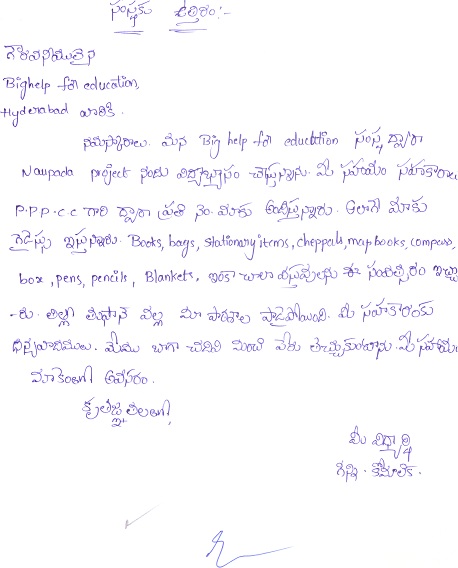 సంస్థకు ఉత్తరం:-
గౌరవనీయులైన
Bighelp for education,
Hyderabad వారికి.
నమస్కారాలు. మన Big help for education సంస్థ ద్వారా
Naupada project నందు విద్యాభ్యాసం చేస్తున్నాను. మీ సహాయం సహకారాలు
P.P.P.C.C గారి ద్వారా ప్రతి నెల మాకు అందిస్తున్నారు. అలాగే మాకు
గైడెన్సు ఇస్తున్నారు. Books, bags, stationary items, cheppals, map books, compass,
box, pens, pencils, Blankets, ఇంకా చాలా వస్తువులను ఈ సంవత్సరం ఇచ్చా
-రు. తిల్లీ తుఫానె వల్ల మా పాఠశాల పాడైపోయింది. మీ సహకారంకు
ధన్యవాదములు. మేము బాగా చదివి మంచి పేరు తెచ్చుకుంటాను. మీ సహాయం
మాకెంతో అవసరం.
కృతజ్ఞతలతో,
మీ విద్యార్థి